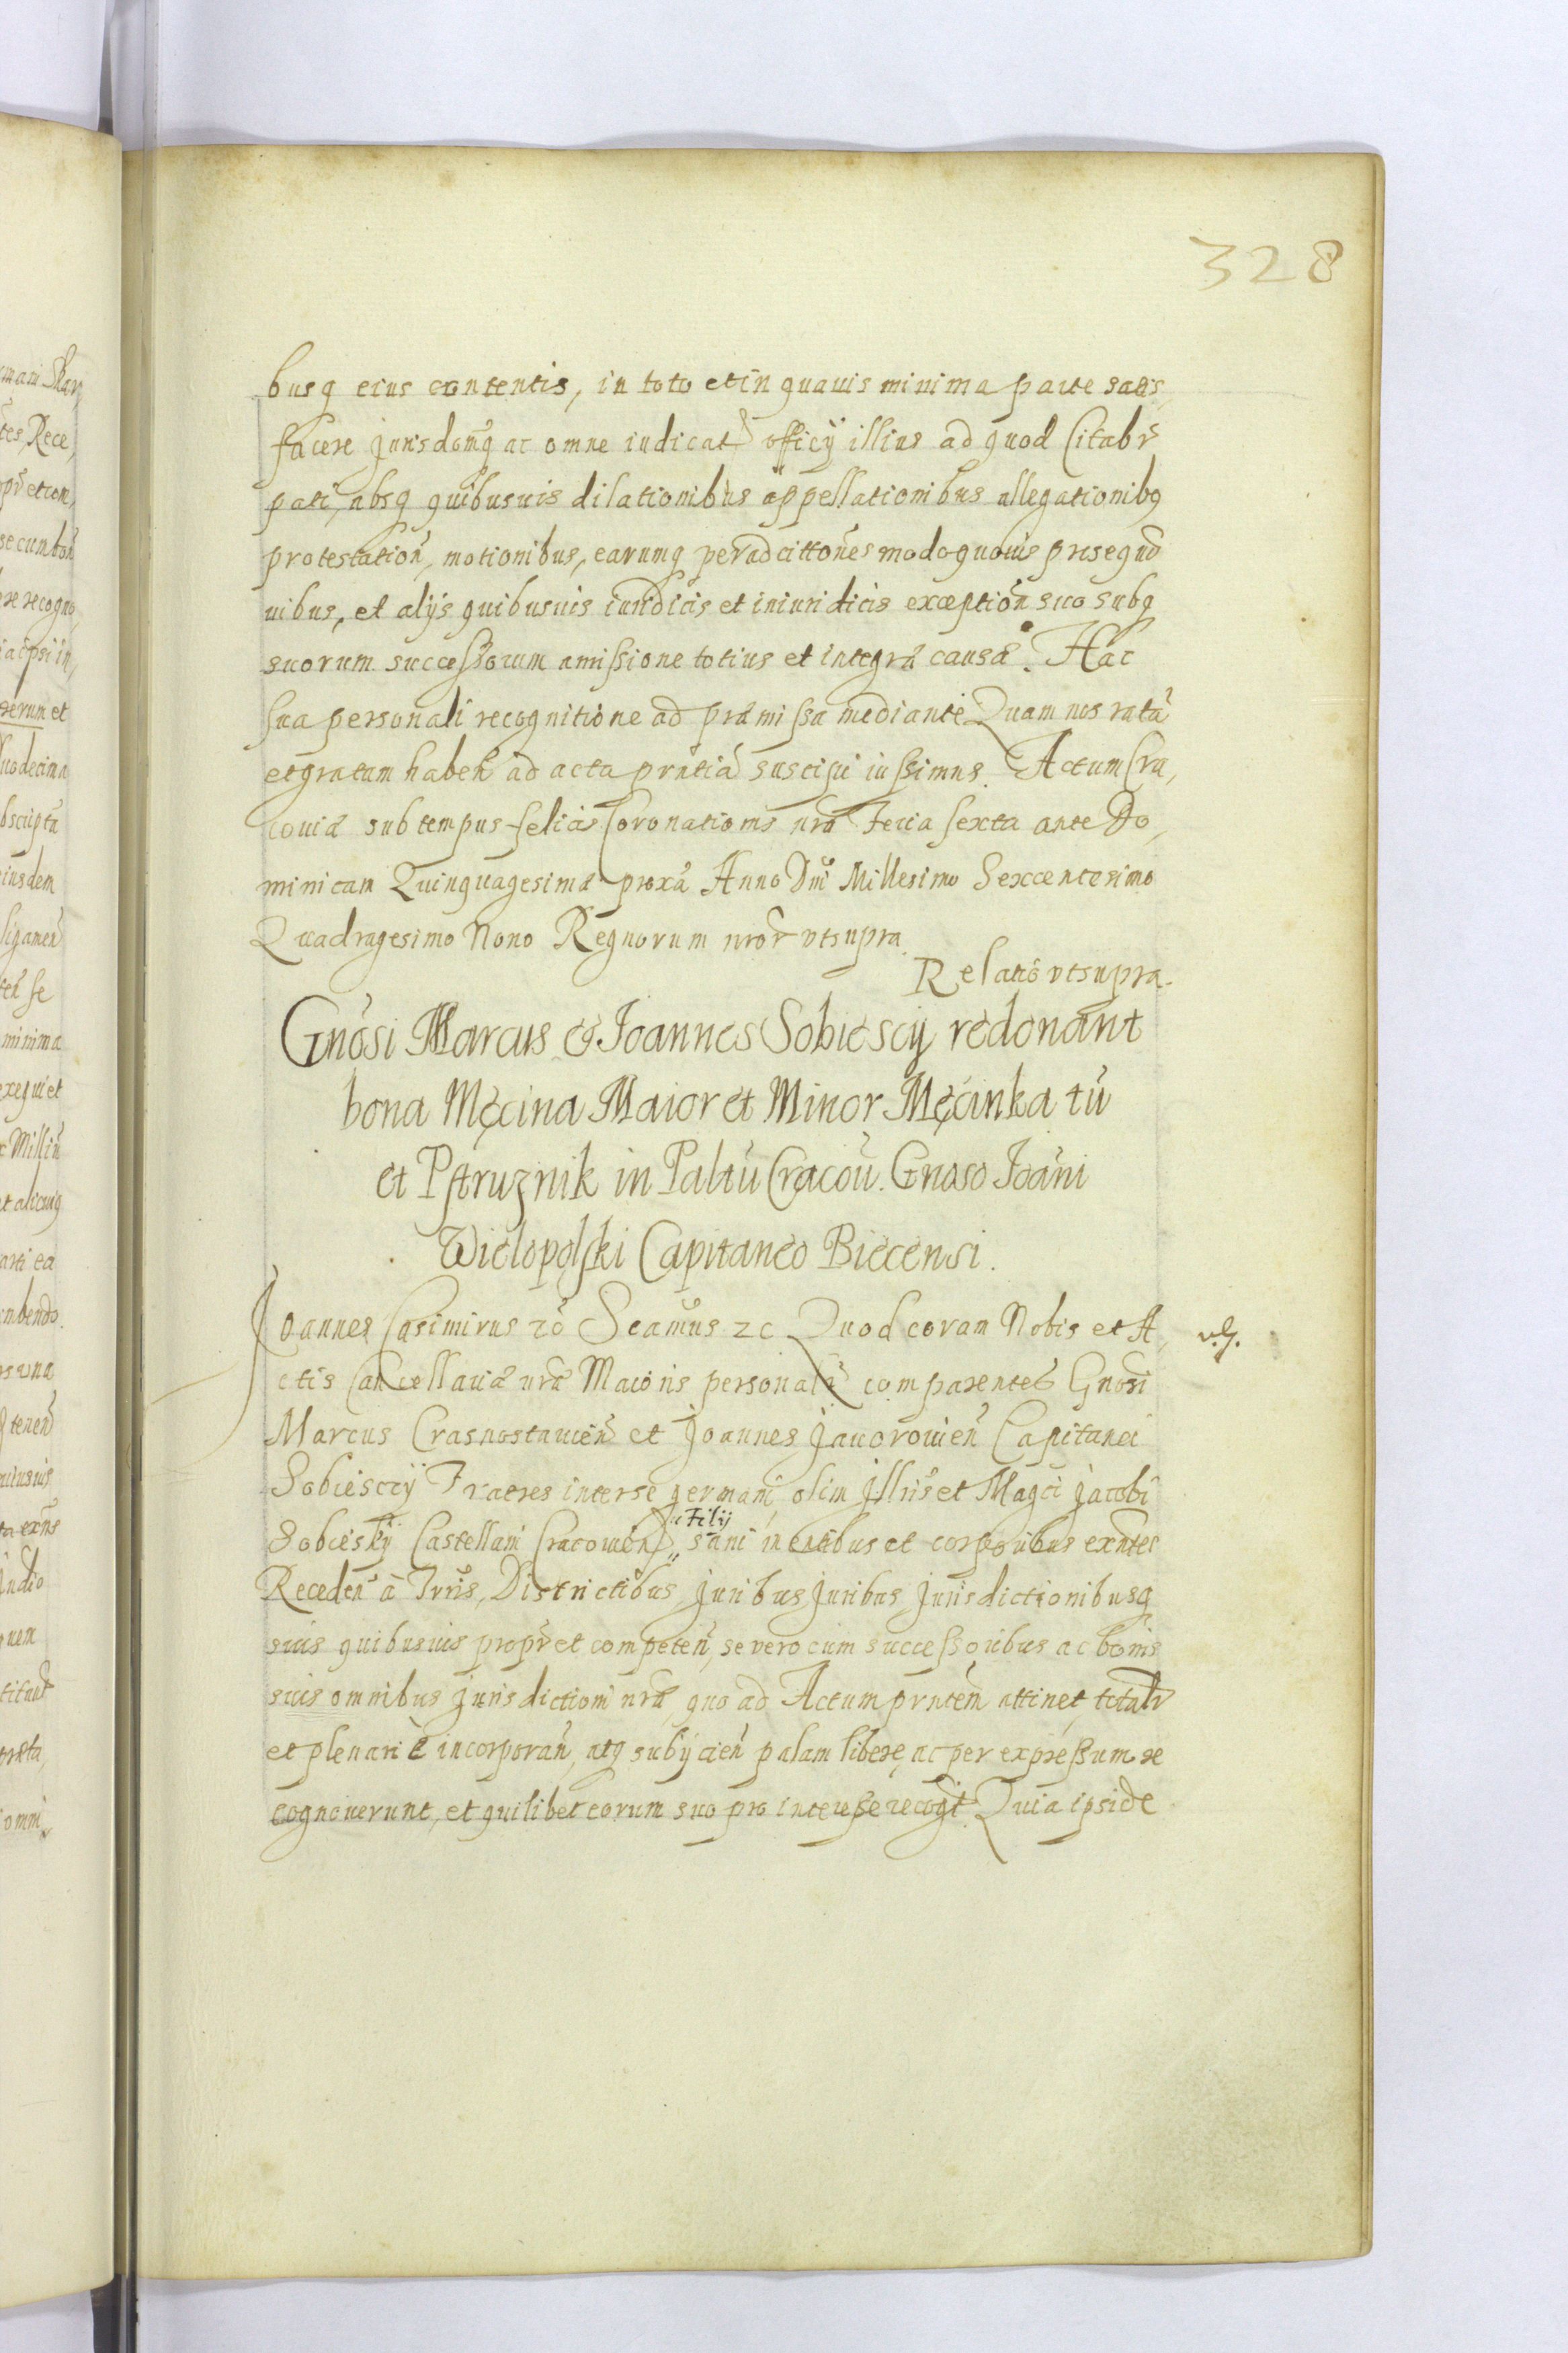 328
busq eius contentis, in toto et in quauis minima parte satis,
facere Jurisdonẽq ac omne iudicat officij illius ad quod Citabr
pati, absq quibusuis dilationibus appellationibus allegationibq
protestation, motionibus, earumq per adcittones modoquouis prosequen
uibus, et alijs quibusuis iuridicis et iniuridicis exception suo subq
suorum successorum amissione totius et integræ causæ. Hac
sua personali recognitione ad præmissa mediante Quam nos ratã
et gratam haben ad acta prntia suscipi iussimus. Actum Cra,
couiæ sub tempus felicis Coronationis nræ Feria sexta ante Do,
minicam Quinquagesimæ proxã Anno Dni Millesimo Sexcentesimo
Quadragesimo Nono Regnorum nror vtsupra
Relatio vtsupra.
Gnosi Marcus & Joannes Sobiescij redonant
bona Męcina Maior et Minor Męcinka tũ
et Pstruznik in Paltu Cracou. Gnoso Joãni
Wielopolski Capitaneo Biecensi.
Joannes Casimirus zc Seamus zc Quod coram Nobis et A,
ctis Cancellariæ nræ Maioris personalr comparentes Gnosi
Marcus Crasnostauien et Joannes Jauorouien Capitanei
Sobiesczÿ Fratres inter se germani, olim Jllris et Magci Jacobi
Sobiesky Castellani Cracouien Filij sani mentibus et corporibus exntes
Receden à Trris, Districtibus Juribus Juribus Jurisdictionibusq
suis quibusuis propr et competen, se vero cum successoribus ac bonis
suis omnibus Jurisdictioni nræ quo ad Actum prntem attinet totalr
et plenarie incorporan, atq subijcien palam libere, ac per expressum re
cognouerunt, et quilibet eorum suo pro interesse recogt Quia ipsi de